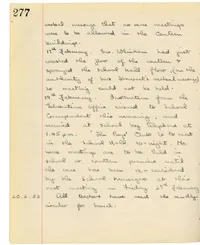 277
verbal message that no more meetings
were to be allowed in the Canteen
buildings.
18th February. Mrs Whitham had just
washed the floor of the canteen &
sprayed the School Hall floor (on the
authority of
no meeting could not be held.
19th February. Instructions from the
Education Office issued to School
Correspondent this morning, and
received at School by telephone at
1.45 p.m. "The Boys' Club is to meet
in the School Hall to-night. No
more meetings are to be held in
school or canteen premises until
the case has been re-considered
by the School Managers at their
next meeting on Friday 27th February
20.2.53
All Teachers have read the
circular for